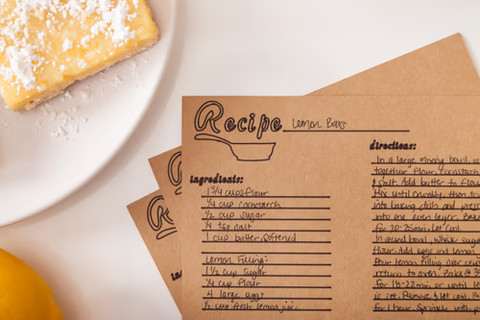 Recipe Lemon Bars
ingredients:
1 3/4 cups flour
1/4 cup cornstarch
1/2 cup sugar
1/4 tsp salt
1 cup butter, softened
Lemon Filling:
1 1/2 cup sugar
1/4 cup flour
4 large eggs
1/2 cup fresh lemon juice
directions:
In a large mixing bowl,
together flour, cornstarch
& salt. Add butter to flour
Mix until crumbly, then
into baking dish and press
into one even layer. Bake
for 20-25min. Let cool.
In another bowl, whisk sugar
flour. Add eggs and lemon
Pour lemon filling over
return to oven. Bake @
for 18-22min or until
is set. Remove & let cool
for 1 hour. Sprinkle with
R
R